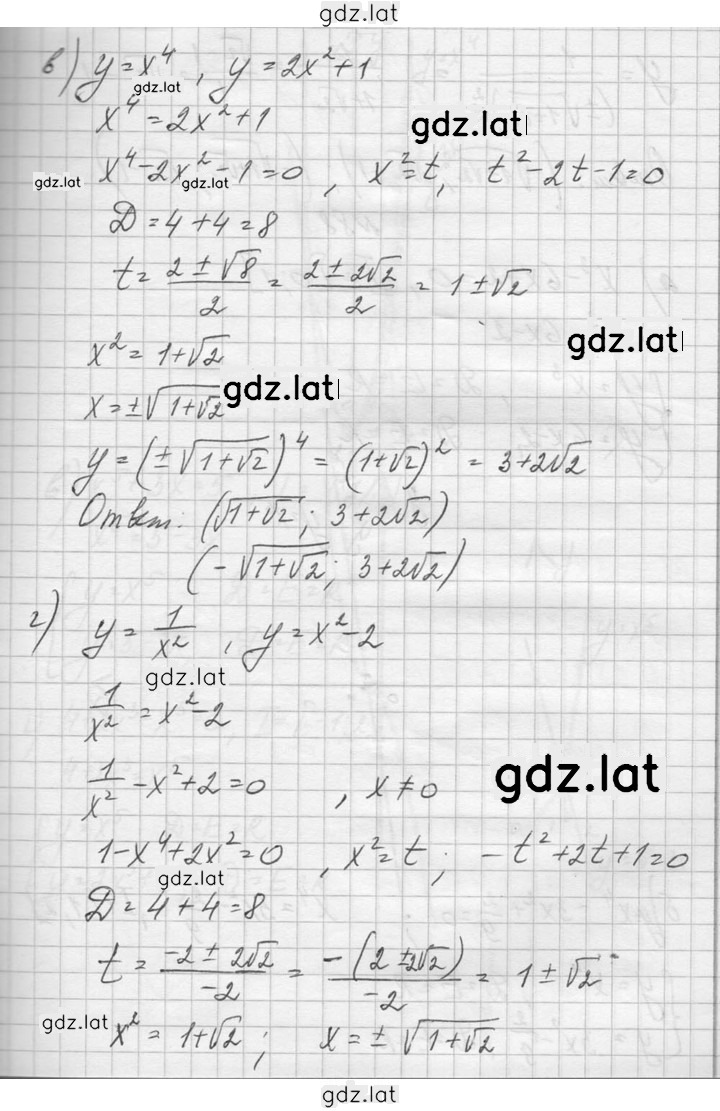 gdz.lat
в) y=x⁴, y=2x²+1
gdz.lat
x⁴=2x²+1
gdz.lat
x⁴-2x²-1=0, x²=t, t²-2t-1=0
gdz.lat gdz.lat
D=4+4=8
t=(2±√8)/2=(2±2√2)/2=1±√2
x²=1+√2
gdz.lat
x=±√(1+√2)
gdz.lat
y=(±√(1+√2))⁴=(1+√2)²=3+2√2
Ответ: (√(1+√2); 3+2√2)
(-√(1+√2); 3+2√2)
г) y=1/x², y=x²-2
gdz.lat
1/x²=x²-2
1/x²-x²+2=0, x≠0
gdz.lat
1-x⁴+2x²=0, x²=t; -t²+2t+1=0
gdz.lat
D=4+4=8
t=(-2±2√2)/-2=-(2±2√2)/-2=1±√2
gdz.lat
x²=1+√2; x=±√(1+√2)
gdz.lat